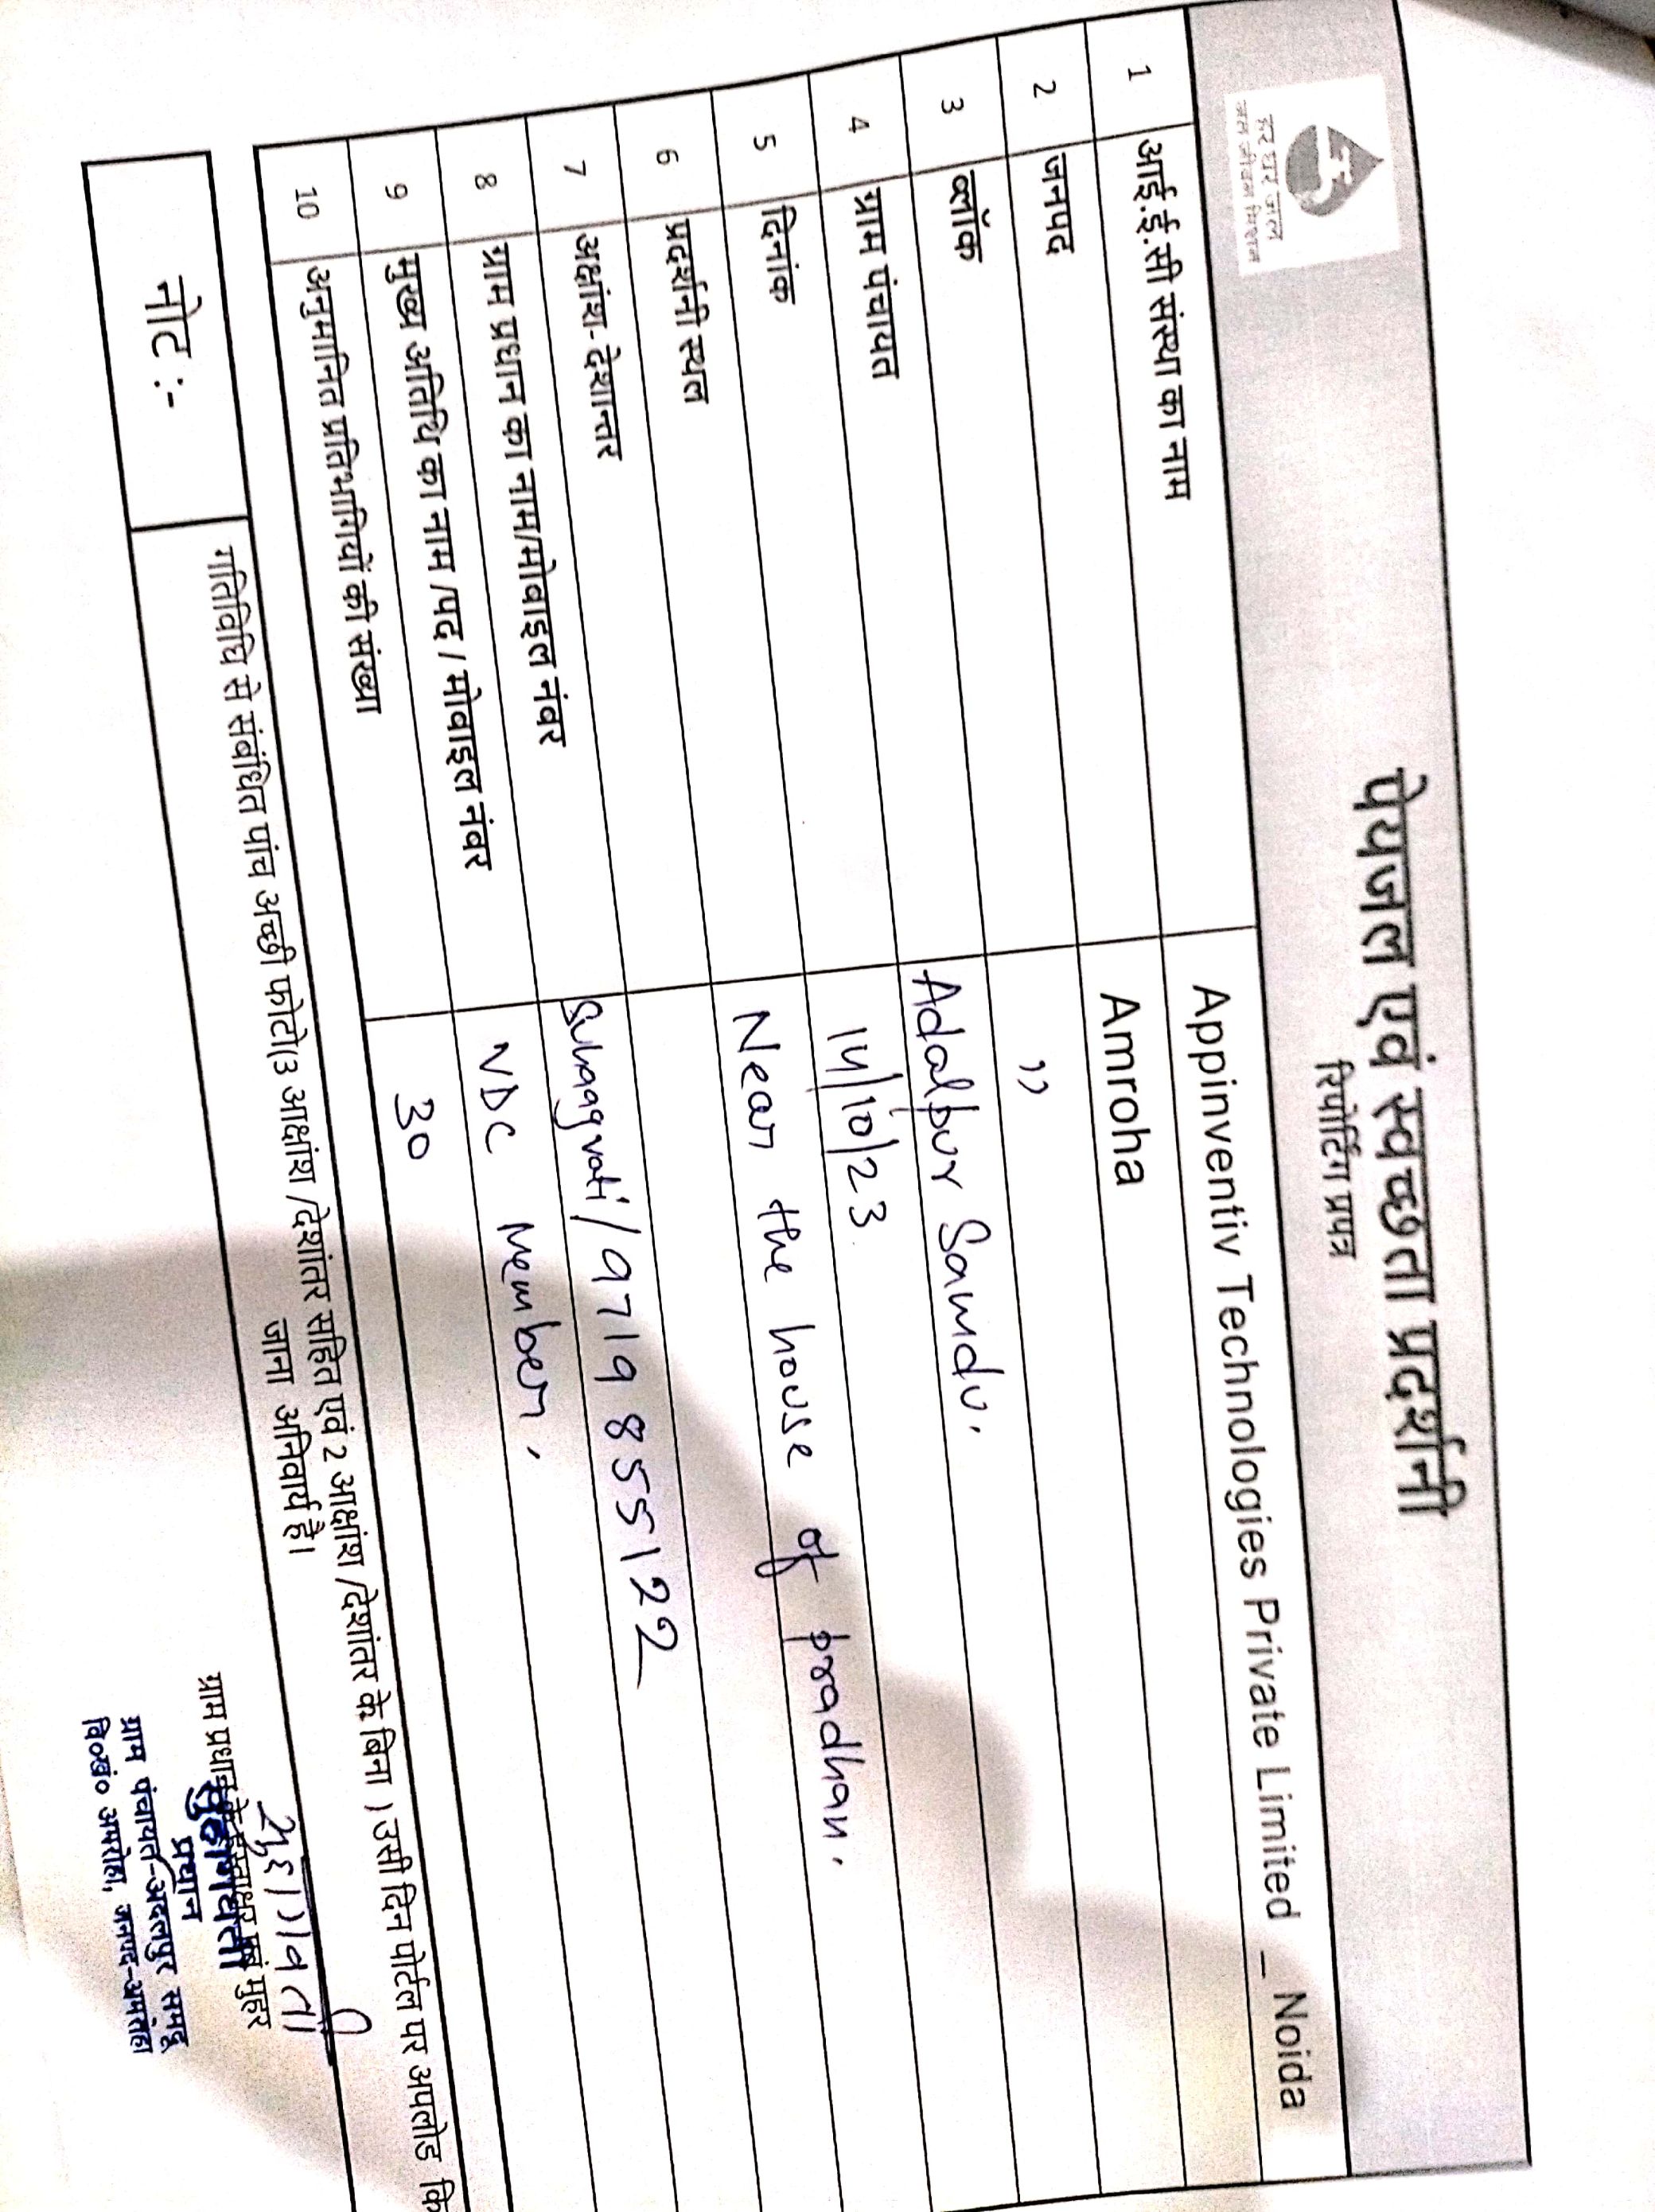 हर घर जल
जल जीवन मिशन
पेयजल एवं स्वच्छता प्रदर्शनी
रिपोर्टिंग प्रपत्र
1 आई.ई.सी संस्था का नाम Appinventiv Technologies Private Limited _ Noida
2 जनपद Amroha
3 ब्लॉक "
4 ग्राम पंचायत Adalpur Samdu.
5 दिनांक 14/10/23
6 प्रदर्शनी स्थल Near the house of pradhan.
7 अक्षांश-देशान्तर
8 ग्राम प्रधान का नाम/मोबाइल नंबर Suhagvati/9719855122
9 मुख्य अतिथि का नाम /पद / मोबाइल नंबर VDC Member.
10 अनुमानित प्रतिभागियों की संख्या 30
नोट :- गतिविधि से संबंधित पांच अच्छी फोटो(3 आक्षांश /देशांतर सहित एवं 2 आक्षांश /देशांतर के बिना ) उसी दिन पोर्टल पर अपलोड कि
जाना अनिवार्य है।
सुहागवती
ग्राम प्रधान के हस्ताक्षर एवं मुहर
सुहागवती
प्रधान
ग्राम पंचायत-अदलपुर समदू
वि०खं० अमरोहा, जनपद-अमरोहा